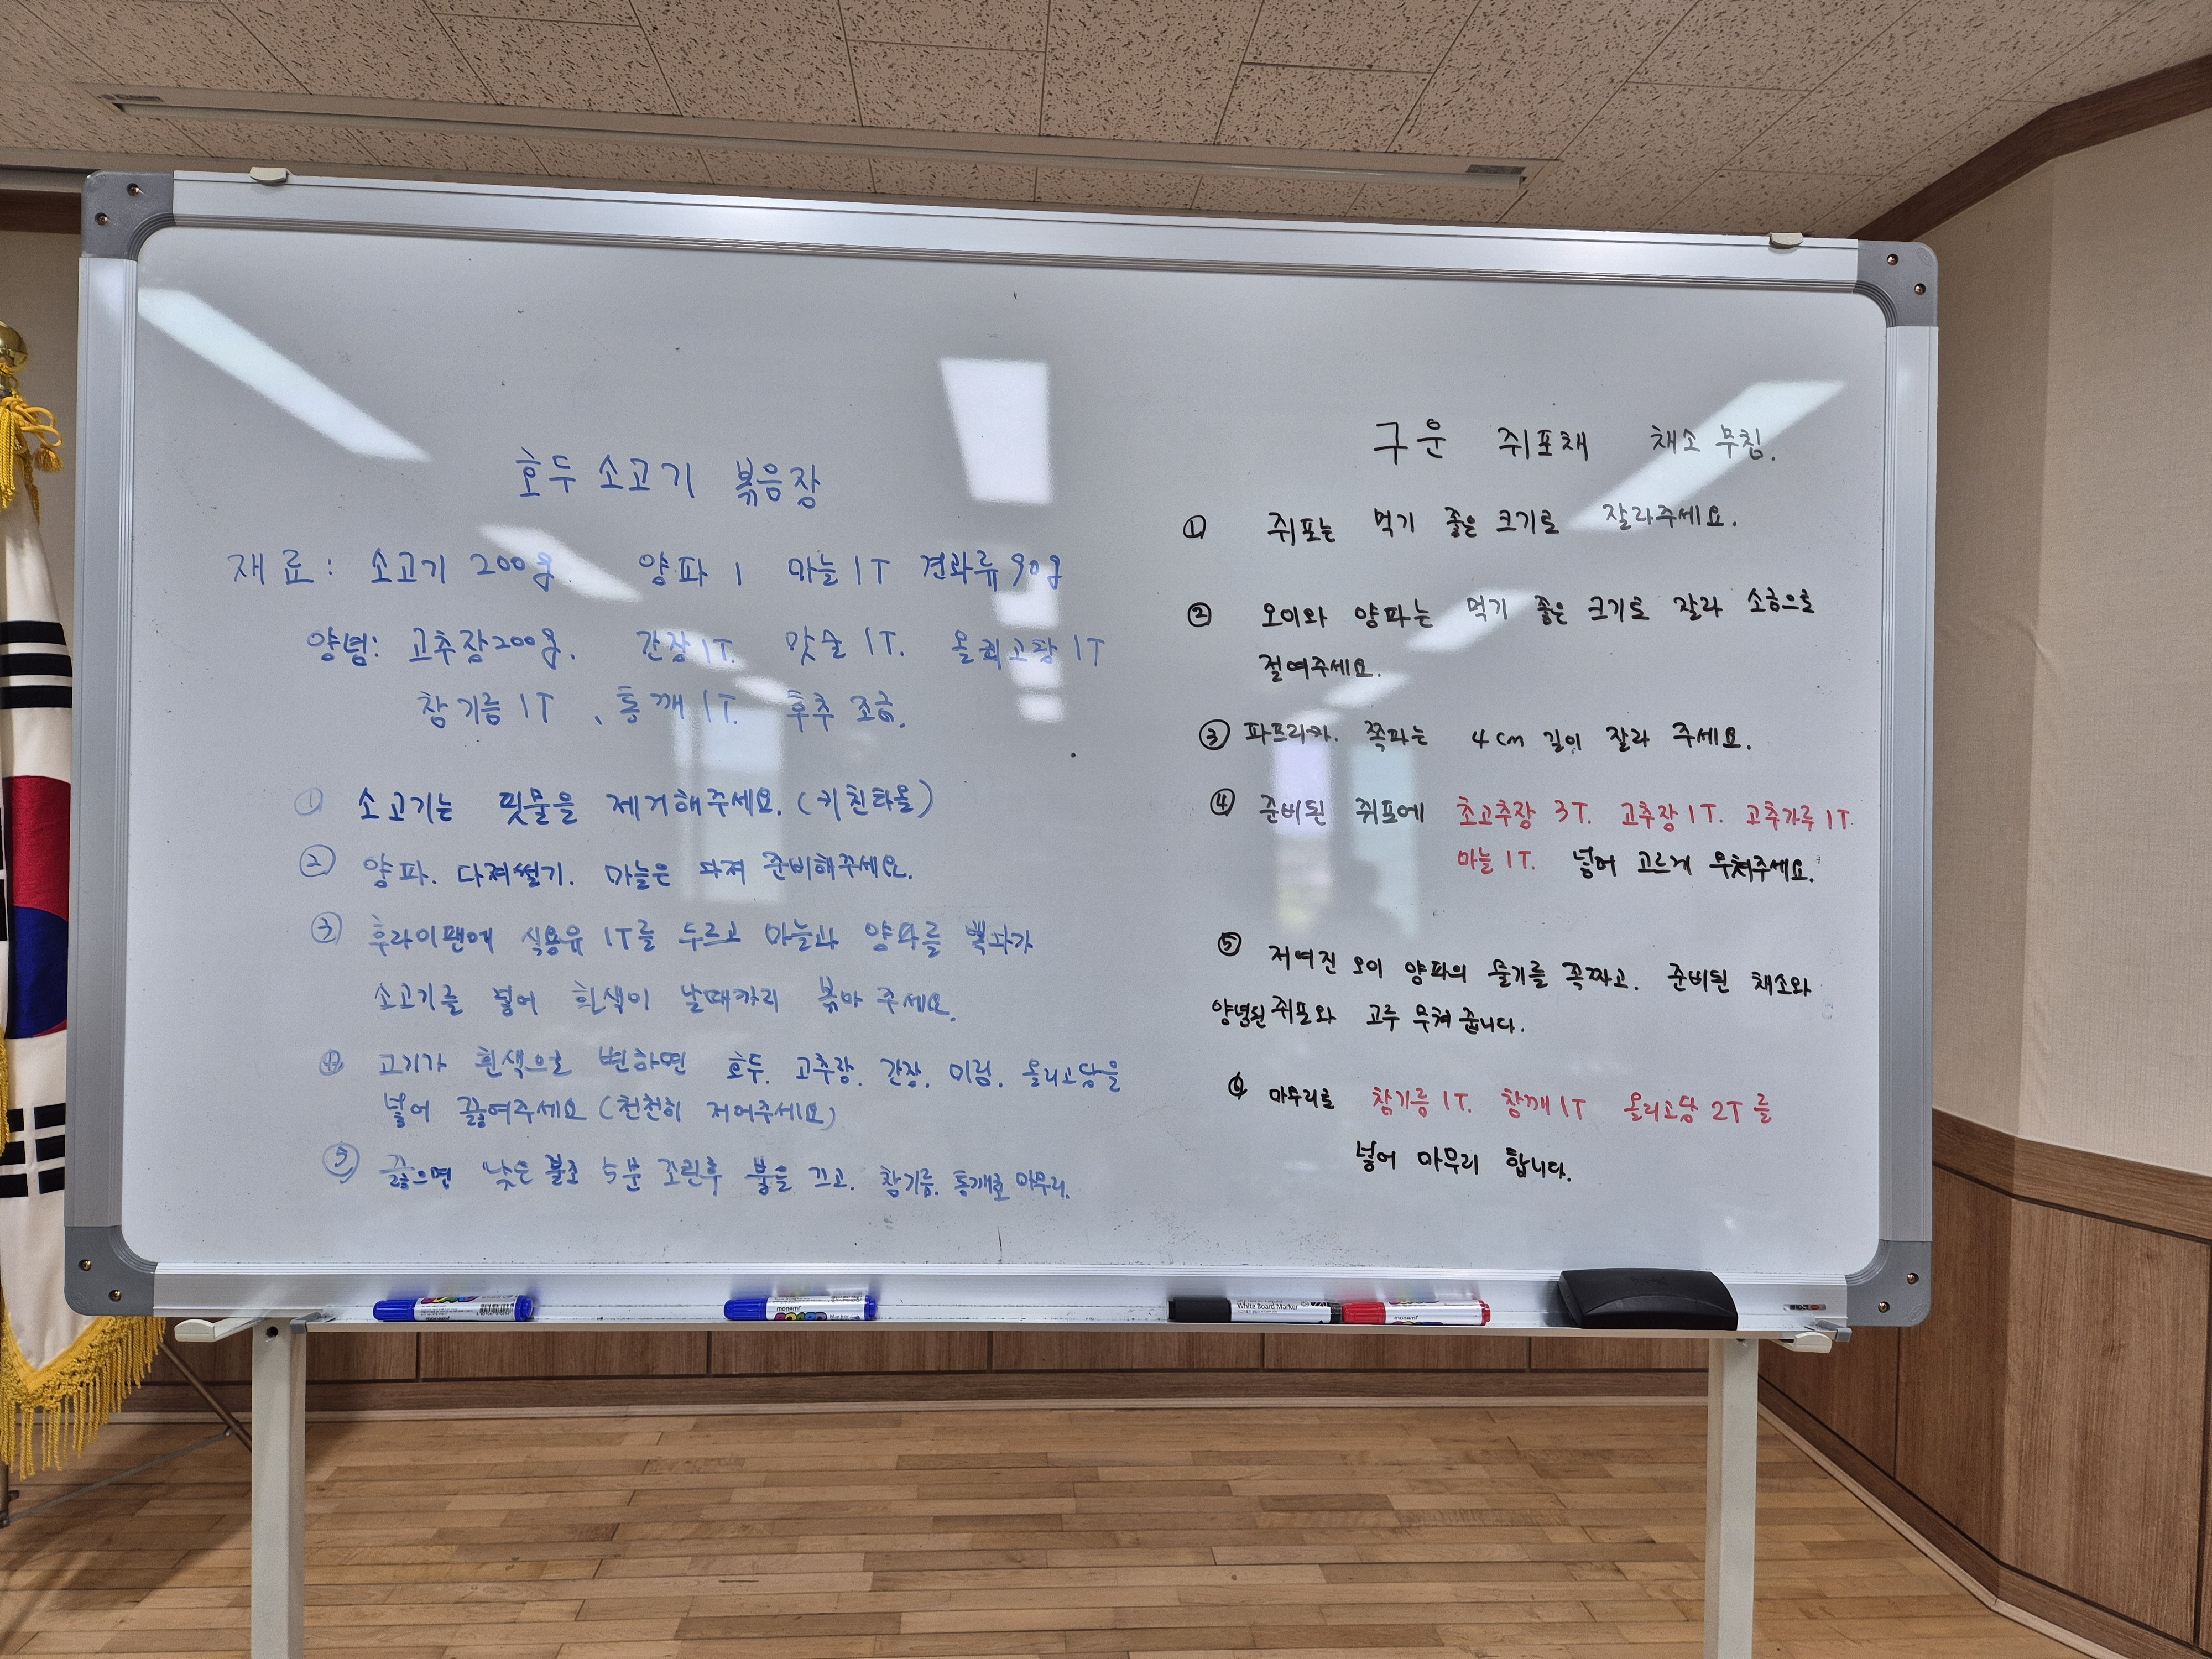 호두 소고기 볶음장
재료: 소고기 200g. 양파 1 마늘 1T 견과류 90g
양념: 고추장 200g. 간장 1T. 맛술 1T. 올리고당 1T
참기름 1T 、통깨 1T. 후추 조금.
① 소고기는 핏물을 제거해주세요. (키친타올)
② 양파. 다져썰기. 마늘은 다져 준비해주세요.
③ 후라이팬에 식용유 1T를 두르고 마늘과 양파를 볶다가
소고기를 넣어 흰색이 날때까리 볶아 주세요.
④ 고기가 흰색으로 변하면 호두. 고추장. 간장. 미림. 올리고당을
넣어 끓여주세요 (천천히 저어주세요)
⑤ 끓으면 낮은 불로 5분 조린후 불을 끄고. 참기름. 통깨로 마무리.
구운 쥐포채 채소 무침.
① 쥐포는 먹기 좋은 크기로 잘라주세요.
② 오이와 양파는 먹기 좋은 크기로 잘라 소금으로
절여주세요.
③ 파프리카. 쪽파는 4cm 길이 잘라 주세요.
④ 준비된 쥐포에 초고추장 3T. 고추장 1T. 고추가루 1T.
마늘 1T. 넣어 고르게 무쳐주세요.
⑤ 저여진 오이 양파의 물기를 꼭짜고. 준비된 채소와
양념된 쥐포와 고루 무쳐 줍니다.
⑥ 마무리로 참기름 1T. 참깨 1T 올리고당 2T를
넣어 마무리 합니다.
monami
White Board Marker
monami